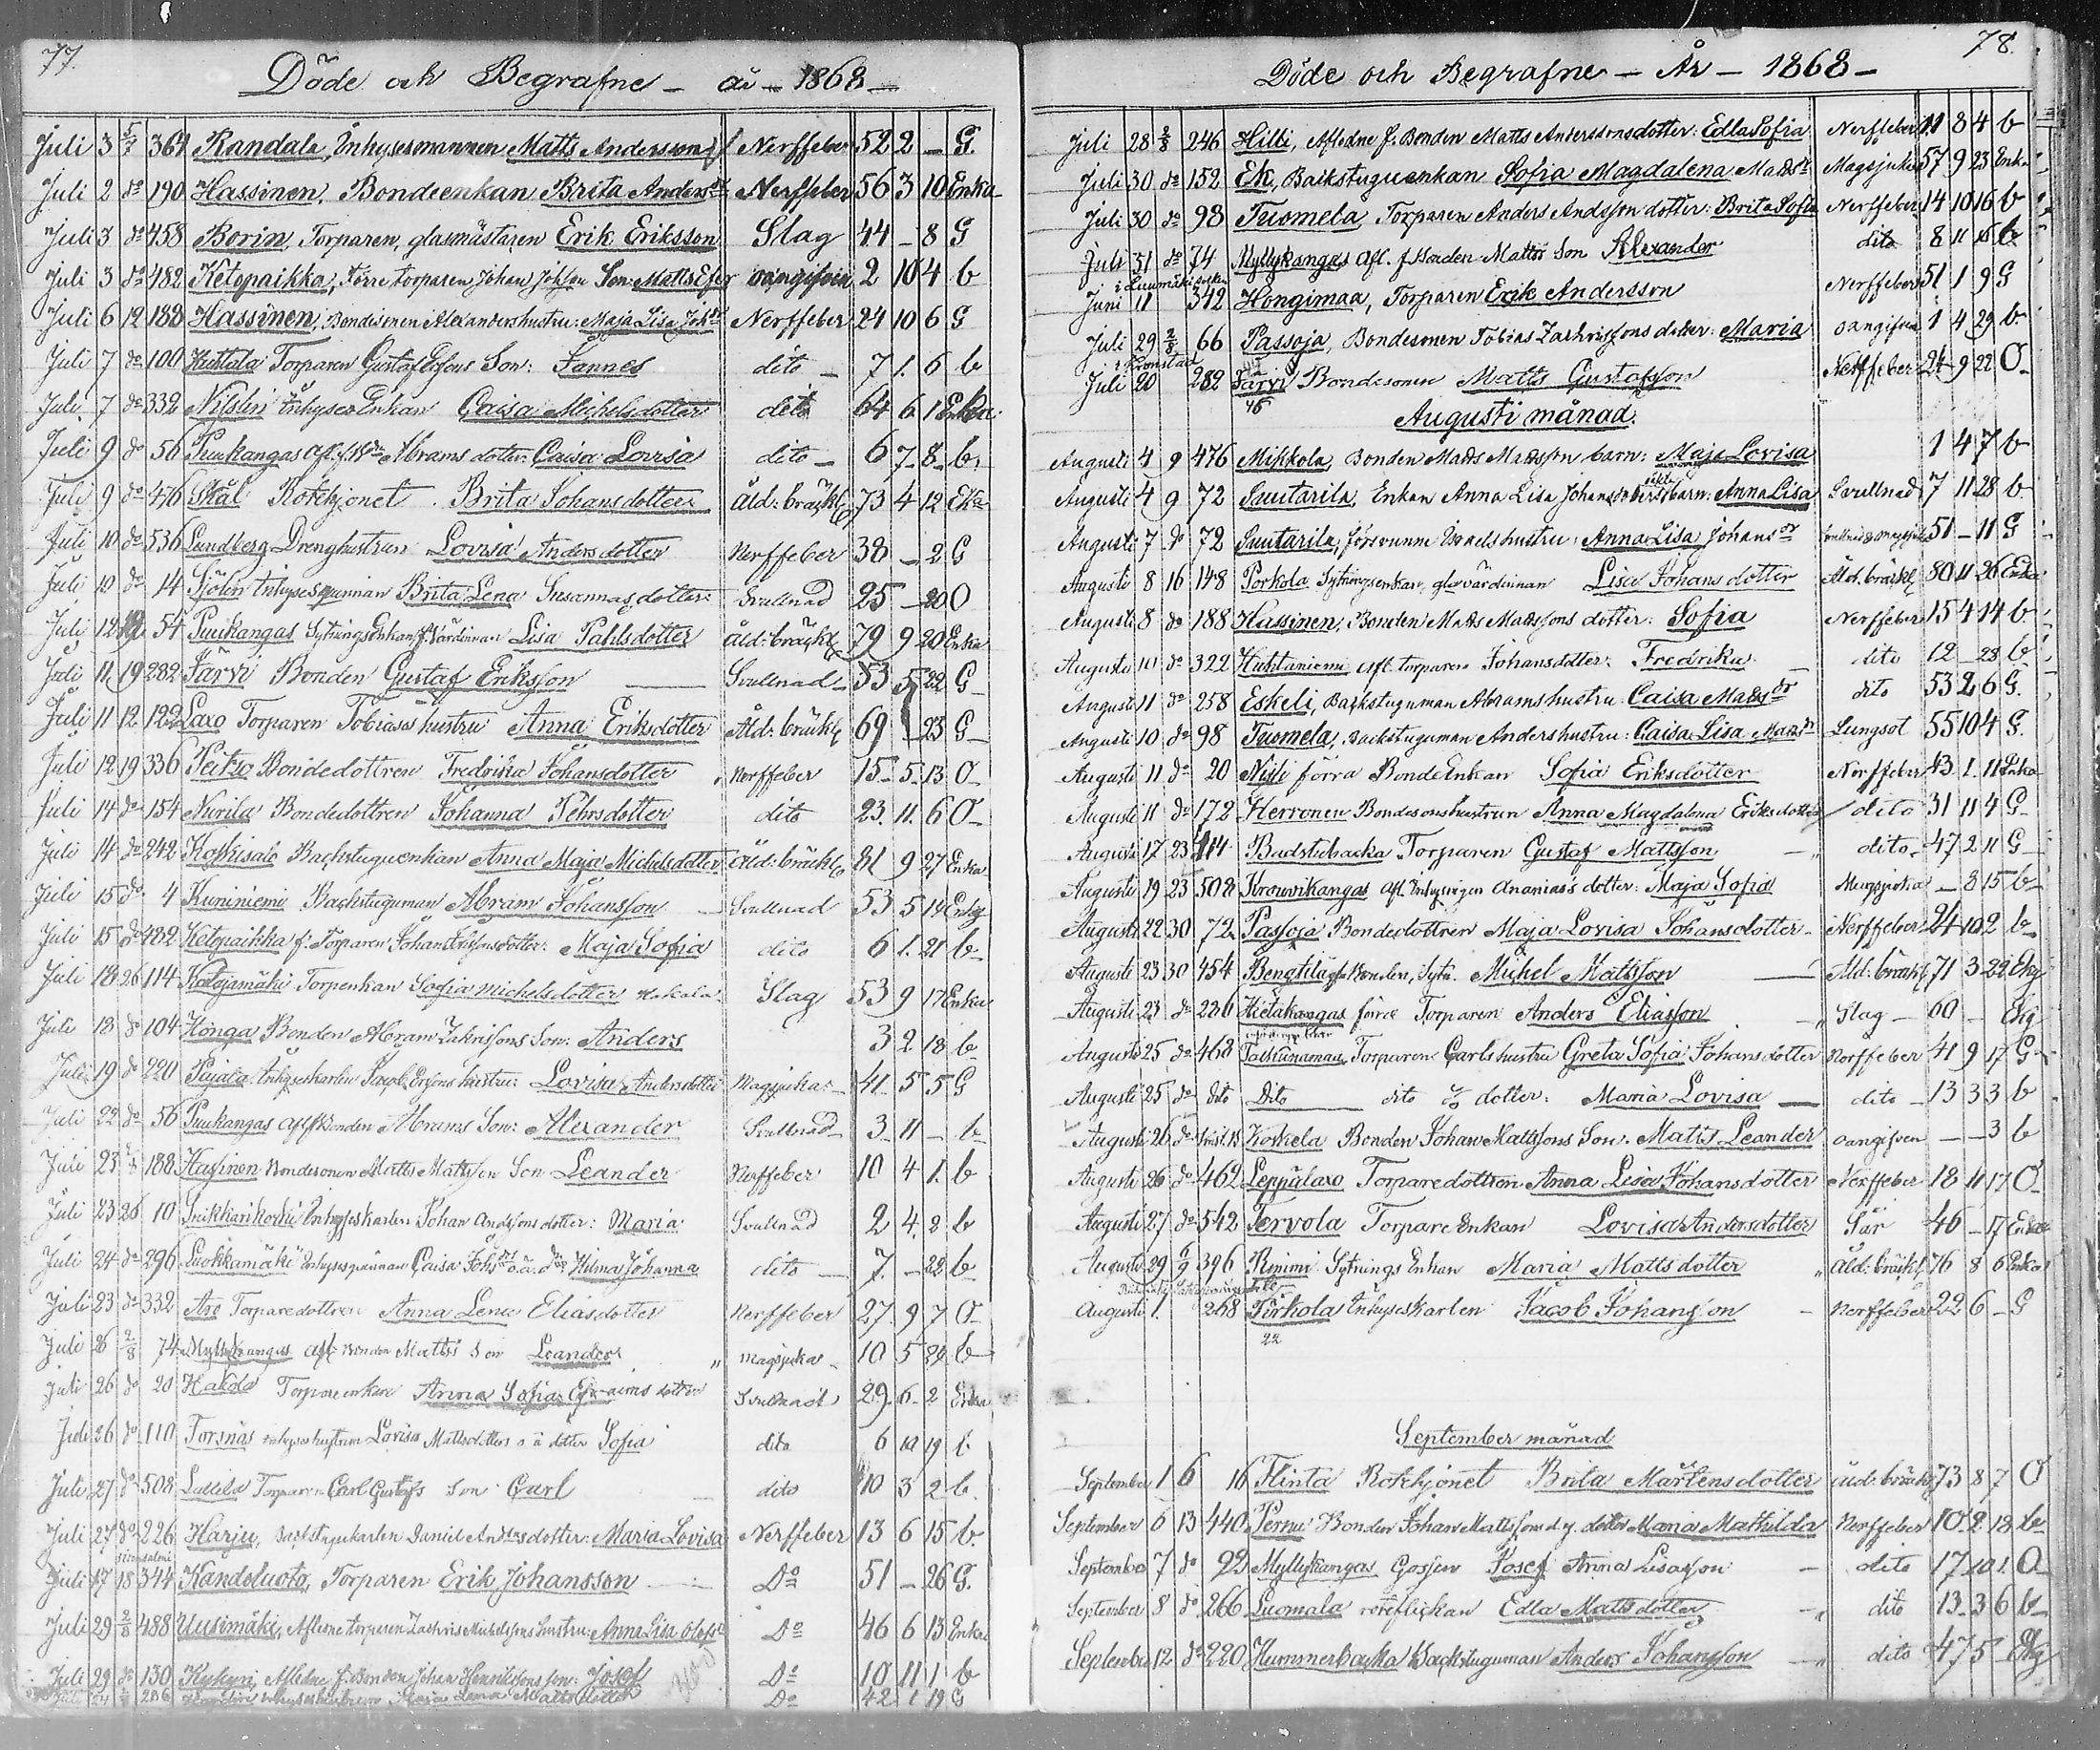 77.
Döde och Begrafne — år — 1868 —
Juli 3 5/7 364 Randala, Inhysesmannen Matts Andersson Nerffeber 52 2 — G.
Juli 2 do 190 Hassinen, Bondeenkan Brita Andersdr Nerffeber 56 3 10 Enka
Juli 3 do 458 Borin, Torparen, glasmästaren Erik Eriksson Slag 44 — 8 G
Juli 3 do 482 Ketopaikka, förre torparen Johan Johsson Son: Matts oangifven 2 10 4 b
Juli 6 12 188 Hassinen, Bondesonen Alexanders hustru: Maja Lisa Johdr Nerffeber 24 10 6 G
Juli 7 do 100 Torparen Gustaf Ersons Son: Sannes dito — 7 1. 6 b
Juli 7 do 332 Nilslin Inhyses Enkan Caisa Michelsdotter dito 64 6 1 Enka
Juli 9 do 56 Puukangas Abrams dotter: Caisa Lovisa dito — 6 7 8 b.
Juli 9 do 476 Skål Rotehjonet Brita Johansdotter åld: bräckl 73 4 12 Eka
Juli 10 do 536 Lundberg Drenghustrun Lovisa Andersdotter Nerffeber 38 — 2 G
Juli 10 do 14 Sjölin Inhysesqvinnan Brita Lena Susannasdotter Svullnad 25 — 20 O
Juli 12 19 54 Puukangas Sytningsenkan f. Värdinnan Lisa Pahlsdotter åld: bräckl 79 9 20 Enka
Juli 11 19 282 Järvi Bonden Gustaf Eriksson Svullnad 53 5 22 G
Juli 11 12 122 Laxo Torparen Tobiases hustru Anna Eriksdotter Åld: bräckl 69 — 23 G
Juli 12 19 336 Peitzo Bondedottren Fredrika Johansdotter Nerffeber 15 5 13 O
Juli 14 do 154 Nurila Bondedottren Johanna Pehrsdotter dito 23. 11. 6 O
Juli 14 do 242 Koskisalo Backstuguenkan Anna Maja Michelsdotter åld: bräckl 81 9 27 Enka
Juli 15 do 4 Kuniniemi Backstuguman Abram Johansson Svullnad 53 5 14 Enkg
Juli 15 do 482 Ketopaikka f. Torparen Johan Johssons dotter: Maja Sofia dito 6 1. 21 b
Juli 18 26 114 Katajamäki Torpenkan Sofia Michelsdotter Slag 53 9 17 Enka
Juli 18 do 104 Honga Bonden Abram Zakrissons Son: Anders 3 2 18 b
Juli 19 do 220 Pajala Inhyseskarlen Jacob Ersons hustru: Lovisa Andersdotter Magsjuka 41 5 5 G
Juli 22 do 56 Puukangas Bonden Abrams Son: Alexander Svullnad 3 11 — b
Juli 23 188 Hassinen Bondesonen Matts Mattsson Son Leander Nerffeber 10 4 1. b
Juli 23 26 10 Inhyseskarlen Johan Andssons dotter: Maria Svullnad 2 4 2 b
Juli 24 do 296 Luokkamäki Inhysesqvinnan Caisa Johsdr o.ä. dr Hilma Johanna dito — 7. — 22 b
Juli 23 do 332 Aro Torparedottren Anna Lena Eliasdotter Nerffeber 27 9 7 O
Juli 26 2/8 74 Myllykangas afl. Bonden Matts Son Leander Magsjuka 10 5 24 b
Juli 26 do 20 Hakola Torpareenkan Anna Sofia Efraimsdotter Svullnad 29. 6 2 Enka
Juli 26 do 110 Torsnäs Lovisa Mattsdotters o ä dotter Sofia dito 6 10 19 b
Juli 27 do 508 Lassila Torparen Carl Gustafs Son Carl dito 10 3 2 b.
Juli 27 do 226 Harju, Backstugukarlen Daniel Anders dotter: Maria Lovisa Nerffeber 13 6 15 b.
Juli 17 18 344 Kandoluoto, Torparen Erik Johansson Do 51 — 26 G.
Juli 29 2/8 488 Uusimäki, Aflidne torparen Zachris Michelssons hustru: Anna Lisa Olofsdr Do 46 6 13 Enka
Juli 29 do 130 Kykyri, Aflidne f. Bonden Johan Henrikssons son: Josef Do 10 11 1 b
Juli 286 Inhyseshustrun Maja Lena Mattsdotter Do 42 1 19 G
78.
Döde och Begrafne — År — 1868 —
Juli 28 2/8 246 Hilli, Aflidne f. Bonden Matts Anderssons dotter: Edla Sofia Nerffeber 11 8 4 b
Juli 30 do 152 Ek, Backstuguenkan Sofia Magdalena Mattsdr Magsjuka 57 9 23 Enka
Juli 30 do 98 Tuomela, Torparen Anders Andssons dotter: Brita Sofia Nerffeber 14 10 16 b
Juli 31 do 74 Myllykangas afl. f Bonden Matts Son Alexander dito 8 11 15 b
i Luumäki socken
Juni 11 312 Hongimaa, Torparen Erik Andersson Nerffeber 51 1 9 G
Juli 29 2/8 66 Passoja, Bondesonen Tobias Zachrissons dotter: Maria oangifven 1 4 29 b.
i Kronstad
Juli 20 282 Järvi Bondesonen Matts Gustafsson Nerffeber 24 9 22 O
45
Augusti månad.
Augusti 4 9 476 Mikkola, Bonden Matts Mattsson barn: Maja Lovisa 1 4 7 b
Augusti 4 9 72 Sautarila, Enkan Anna Lisa Johansdotters barn: Anna Lisa Svullnad 7 11 28 b
Augusti 7 do 72 Sautarila, försvunne Israels hustru: Anna Lisa Johansdr 51 — 11 G
Augusti 8 16 148 Porkola Sytningsenkan, gla värdinnan Lisa Johans dotter Åld. bräckl 80 11 26 Enka
Augusti 8 do 188 Hassinen, Bonden Matts Mattssons dotter: Sofia Nerffeber 15 4 14 b
Augusti 10 do 322 Huhtaniemi afl. torparen Johansdotter: Fredrika dito 12 — 28 b
Augusti 11 do 258 Eskeli, Backstuguman Abrams hustru Caisa Mattsdr dito 53 2 6 G.
Augusti 10 do 98 Tuomela, Backstuguman Anders hustru: Caisa Lisa Mattsdr Lungsot 55 10 4 G.
Augusti 11 do 20 Nissi förra BondeEnkan Sofia Eriksdotter Nerffeber 43. 1. 11 Enka
Augusti 11 do 172 Herronen Bondesonshustrun Anna Magdalena Eriksdotter dito 31 11 4 G
Augusti 17 23 114 Badstubacka Torparen Gustaf Mattsson dito 47 2 11 G
Augusti 19 23 508 Krouvikangas afl. Inhysingen Ananias's dotter: Maja Sofia Magsjuka — 8 15 b
Augusti 22 30 72 Passoja Bondedottren Maja Lovisa Johansdotter Nerffeber 24 10 2 b
Augusti 23 30 454 Bengtilä Bonden, Sytn. Michel Mattsson Åld. bräckl 71 3 22 Ekg
Augusti 23 do 236 Hietakangas förra Torparen Anders Eliasson Slag — 60 — Ekg
Augusti 25 do 468 Torparen Carls hustru Greta Sofia Johansdotter Nerffeber 41 9 17 G
Augusti 25 do dito Dito dito dotter: Maria Lovisa dito 13 3 3 b
Augusti 26 do Koskela Bonden Johan Mattssons Son: Matts Leander oangifven — — 3 b
Augusti 26 do 462 Leppälaxo Torparedottren Anna Lisa Johansdotter Nerffeber 18 11 17 O
Augusti 27 do 542 Tervola TorpareEnkan Lovisa Andersdotter Sår 46 — 17 Enka
Augusti 29 6/9 396 Rinini Sytnings Enkan Maria Matts dotter åld: bräckl 76 8 6 Enka
Augusti 1. 268 Törkola Inhyseskarlen Jacob Johansson Nerffeber 22 6 — G
22
September månad
September 1 6 16 Flinta Rotehjonet Brita Mårtensdotter åld: bräckl 73 8 7 O
September 6 13 440 Pernu Bonden Johan Mattssons d.y. dotter Maria Mathilda Nerffeber 10. 2. 18 b
September 7 do 22 Myllykangas Gossen Josef Anna Lisasson dito 17 10 1. O
September 8 do 266 Luomala roteflickan Edla Mattsdotter dito 13 3 6 b
September 12 do 220 Hummerbacka Backstuguman Anders Johansson dito 47 5 — Ekg